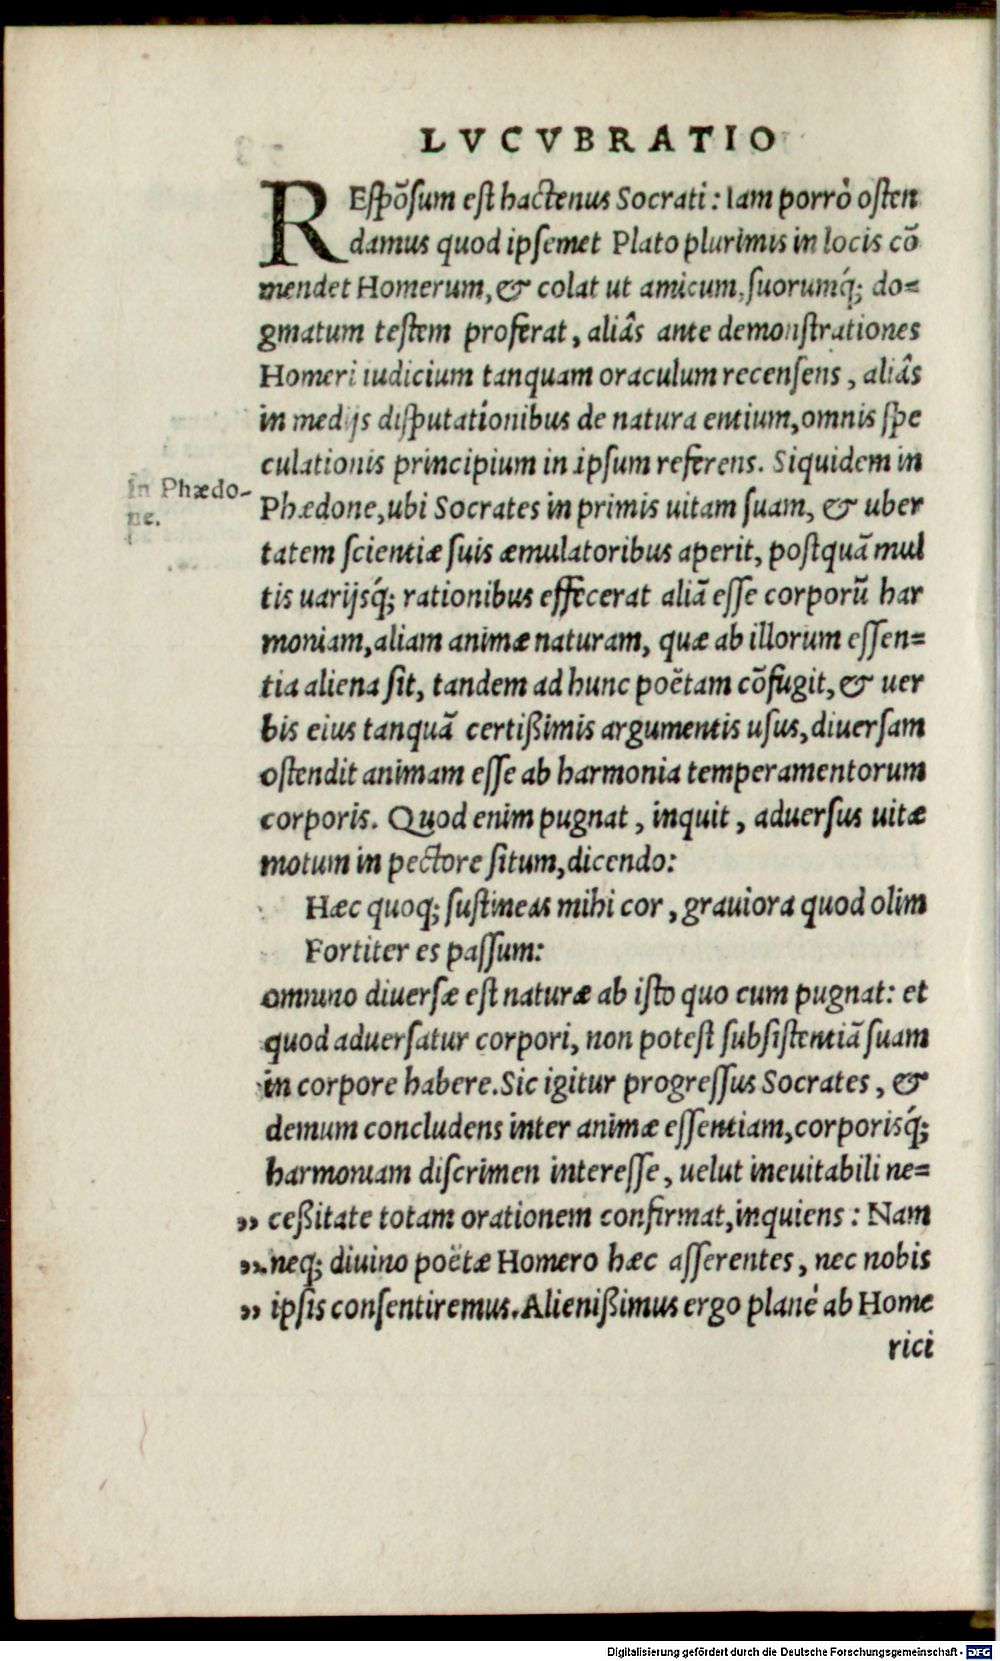 LVCVBRATIO
REſpõſum eſt hactenus Socrati: Iam porrò oſten
damus quod ipſemet Plato plurimis in locis cõ
mendet Homerum, & colat ut amicum, ſuorumq́; do=
gmatum teſtem proferat, aliâs ante demonſtrationes
Homeri iudicium tanquam oraculum recenſens, aliâs
in medijs diſputationibus de natura entium, omnis ſpe
culationis principium in ipſum referens. Siquidem in
In Phædo-
ne.
Phædone, ubi Socrates in primis uitam ſuam, & uber
tatem ſcientiæ ſuis æmulatoribus aperit, poſtquã mul
tis uarijsq́; rationibus effecerat aliã eſſe corporũ har
moniam, aliam animæ naturam, quæ ab illorum eſſen=
tia aliena ſit, tandem ad hunc poëtam cõfugit, & uer
bis eius tanquã certißimis argumentis uſus, diuerſam
oſtendit animam eſſe ab harmonia temperamentorum
corporis. Quod enim pugnat, inquit, aduerſus uitæ
motum in pectore ſitum, dicendo:
Hæc quoq; ſuſtineas mihi cor, grauiora quod olim
Fortiter es paſſum:
omnino diuerſæ eſt naturæ ab iſto quo cum pugnat: et
quod aduerſatur corpori, non poteſt ſubſiſtentiã ſuam
in corpore habere. Sic igitur progreſſus Socrates, &
demum concludens inter animæ eſſentiam, corporisq́;
harmoniam diſcrimen intereſſe, uelut ineuitabili ne=
„ ceßitate totam orationem confirmat, inquiens: Nam
„ neq; diuino poëtæ Homero hæc aſſerentes, nec nobis
„ ipſis conſentiremus. Alienißimus ergo planè ab Home
rici
Digitalisierung gefördert durch die Deutsche Forschungsgemeinschaft - DFG